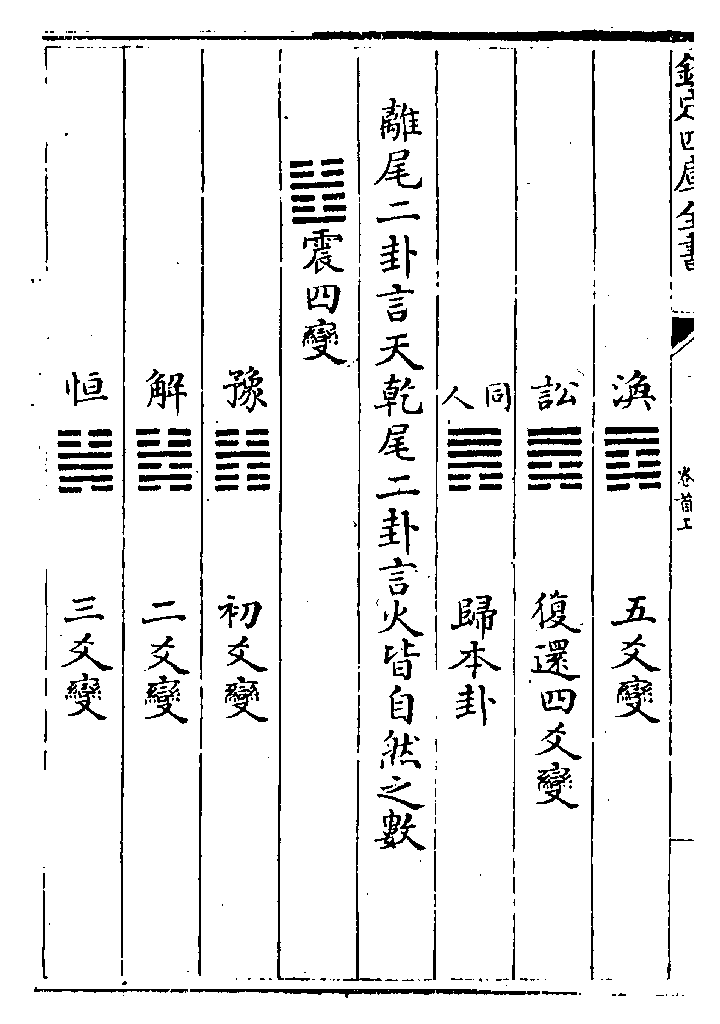 欽定四庫全書
卷首上
渙 五爻變
訟 復還四爻變
同人 歸本卦
離尾二卦言天乾尾二卦言火皆自然之數
震四變
豫 初爻變
解 二爻變
恒 三爻變